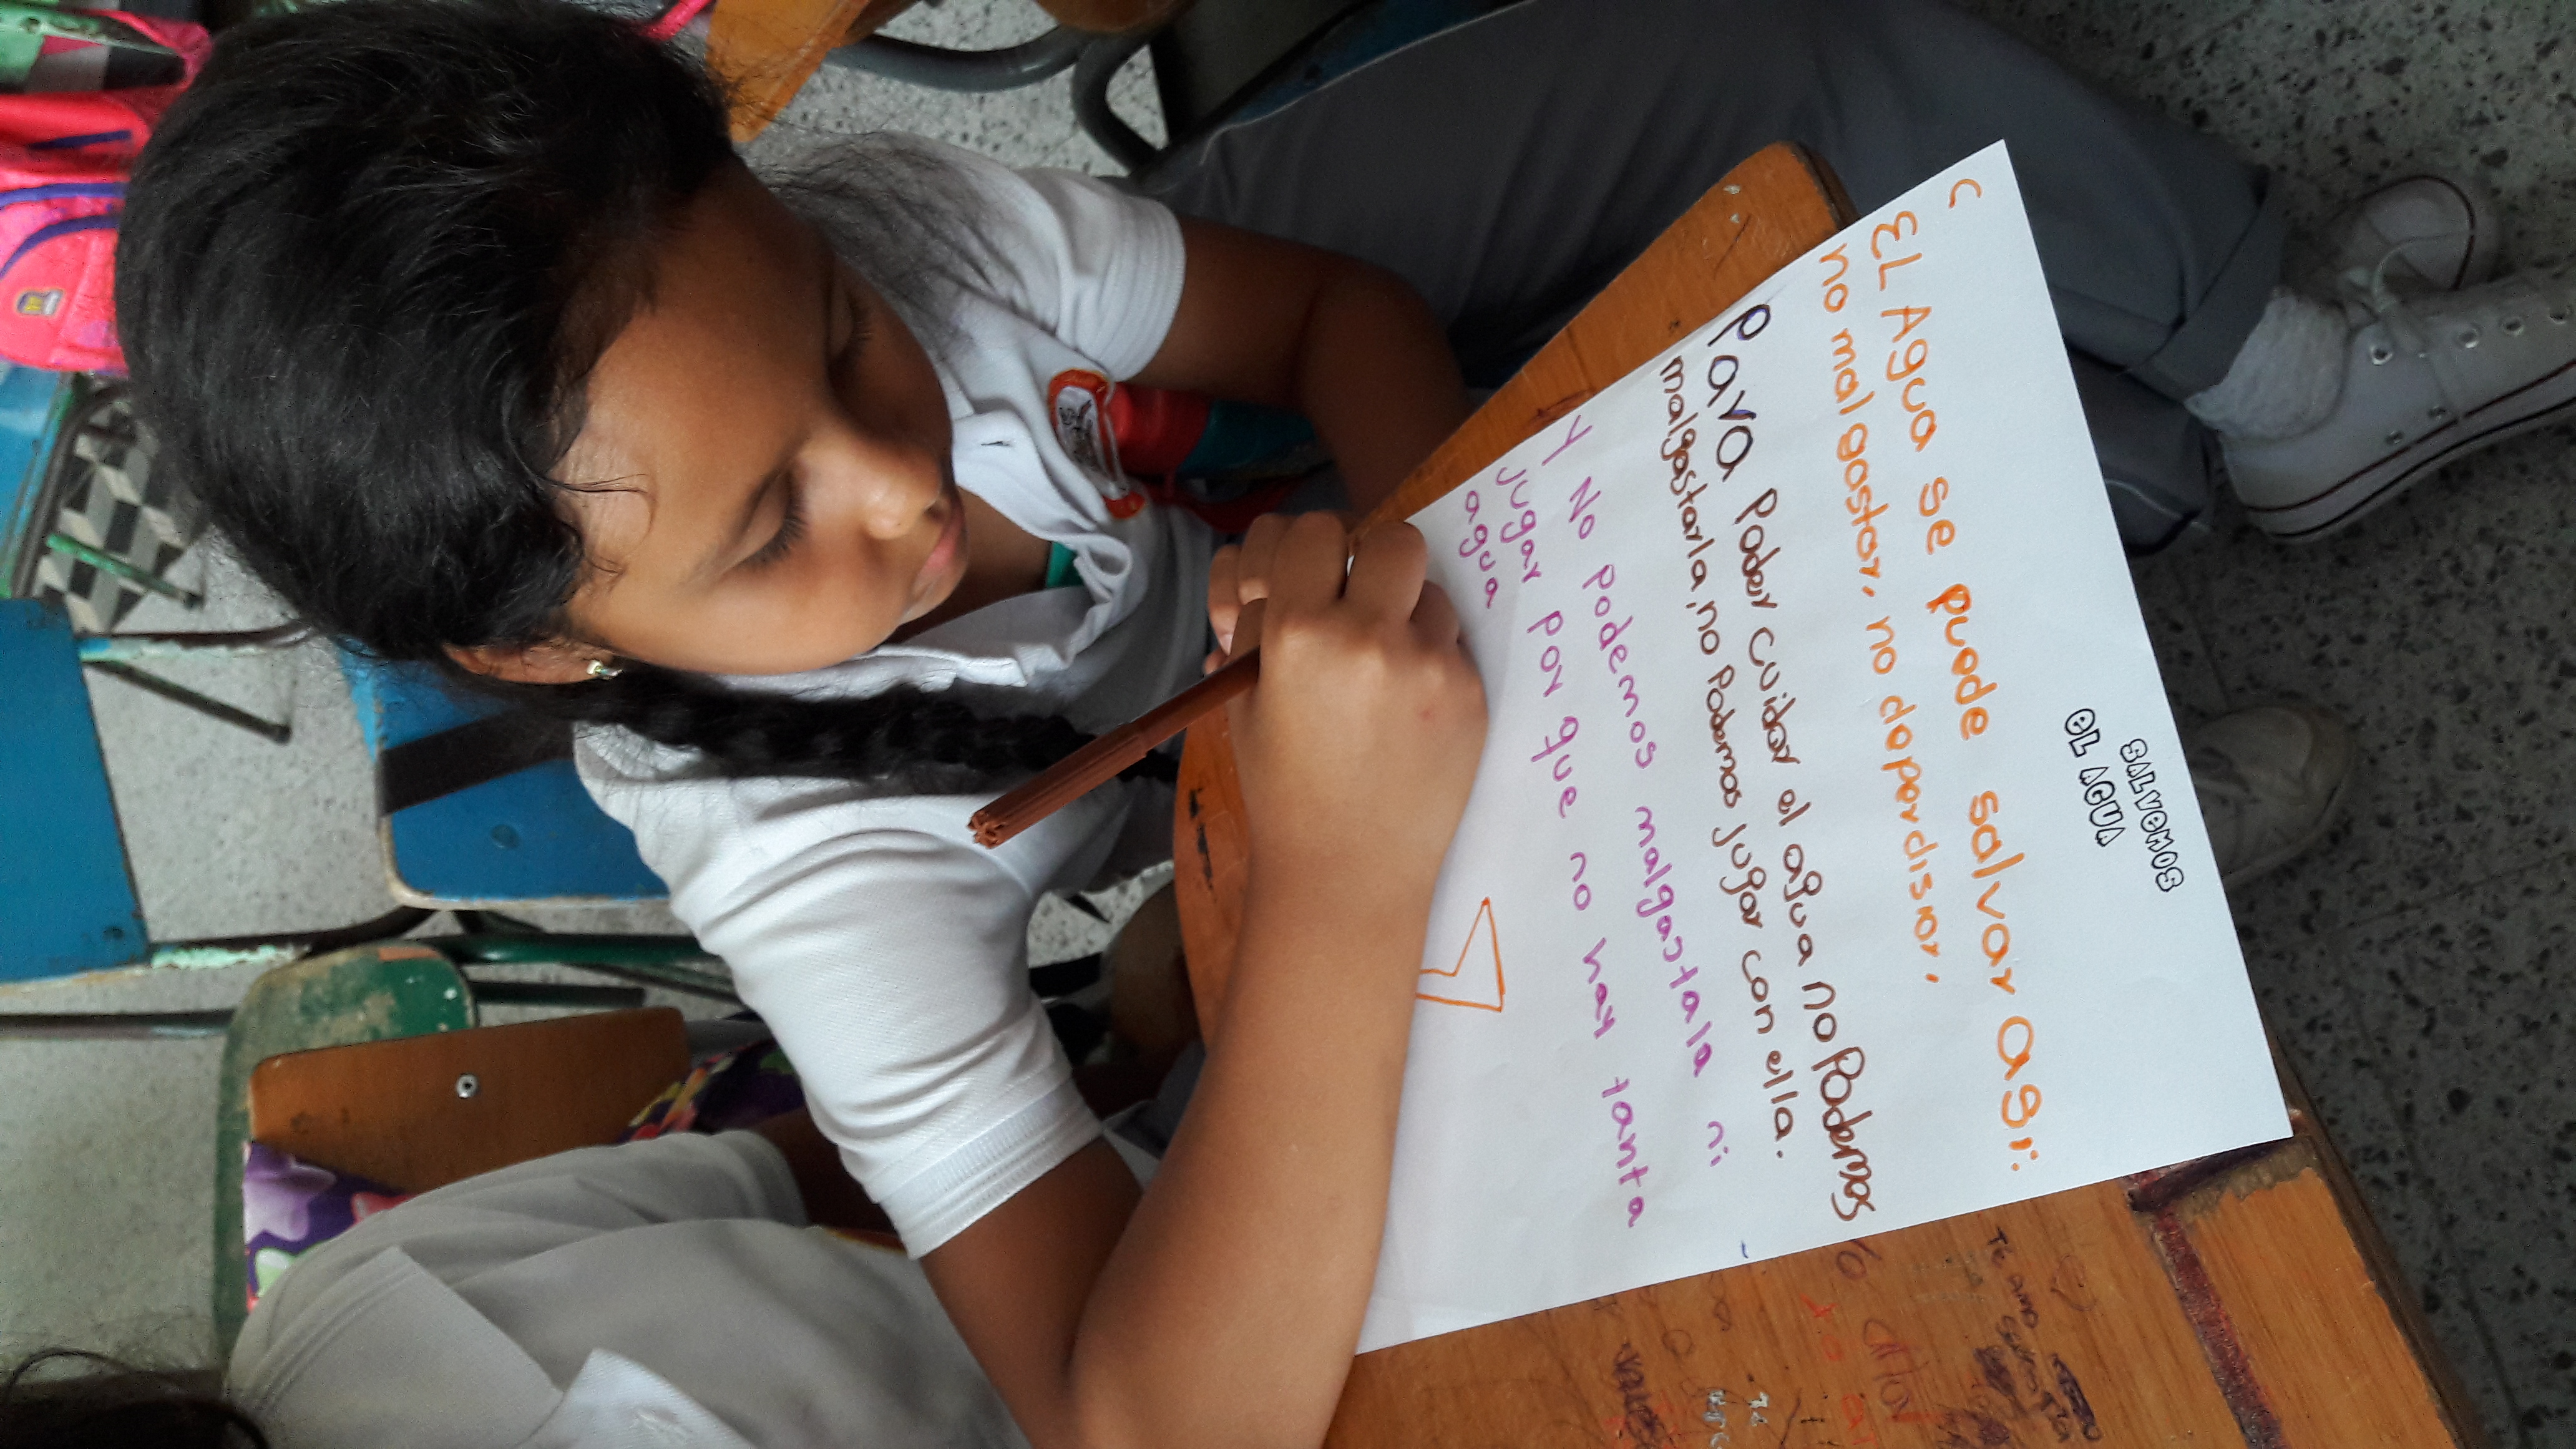 SALVEMOS
EL AGUA
EL Agua se puede salvar asi:
no malgastar, no deperdisiar,
Para Poder cuidar el agua no Podemos
malgastarla, no Podemos jugar con ella.
Y No Podemos malgastala ni
jugar Por que no hay tanta
agua
Te amo